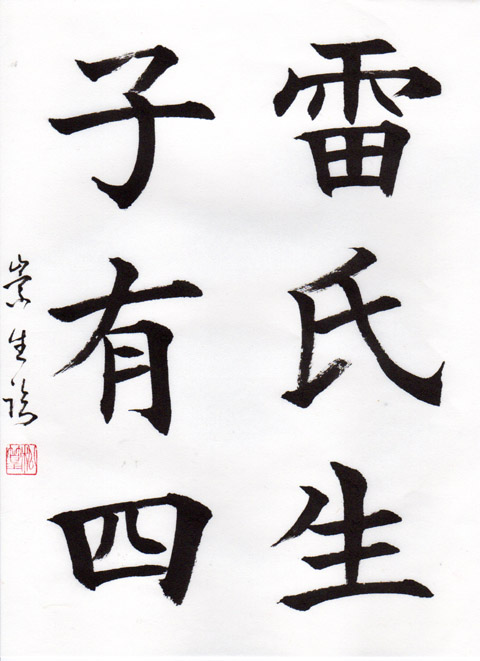 雷氏生
子有四
崇生臨